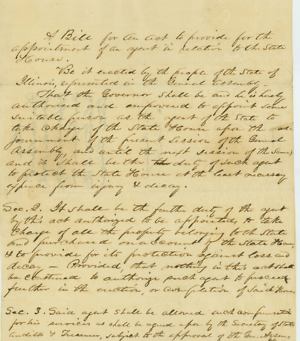 A Bill for an act to provide for the
appointment of an agent in relation to the State
House.
Be it enacted by the people of the State of
Illinois, represented in the General Assembly
That the Governor shall be and he is hereby
authorised and empowered to appoint some
suitable person as the agent of the State to
take charge of the State House upon the ad-
journment of the present session of the General
Assembly, and until the next session of the same
and it shall be the duty of such agent
to protect the State House at the least necessary
expence from injury & decay.
Sec. 2. It shall be the further duty of the agent
by this act authorized to be appointed, to take
charge of all the property belonging to the State
and purchased on account of the State House
& to provide for its protection against loss and
decay - Provided, that nothing in this act shall
be construed to authorize such agent to proceed
further in the erection, or completion of said House
Sec. 3. Said agent shall be allowed such
for his services as shall be agreed upon by the Secretary of State
Auditor & Treasurer, subject to the approval of the Gen. Assem.